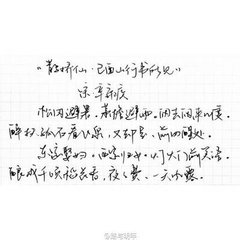 "鹊桥仙·己酉山行书所见"
宋 辛弃疾
松冈避暑。茅檐避雨。闲去闲来几度。
醉扶孤石看飞泉,又却是、前回醒处。
东家娶妇,西家归女。灯火门前笑语。
酿成千顷稻花香,夜夜费、一天风露。